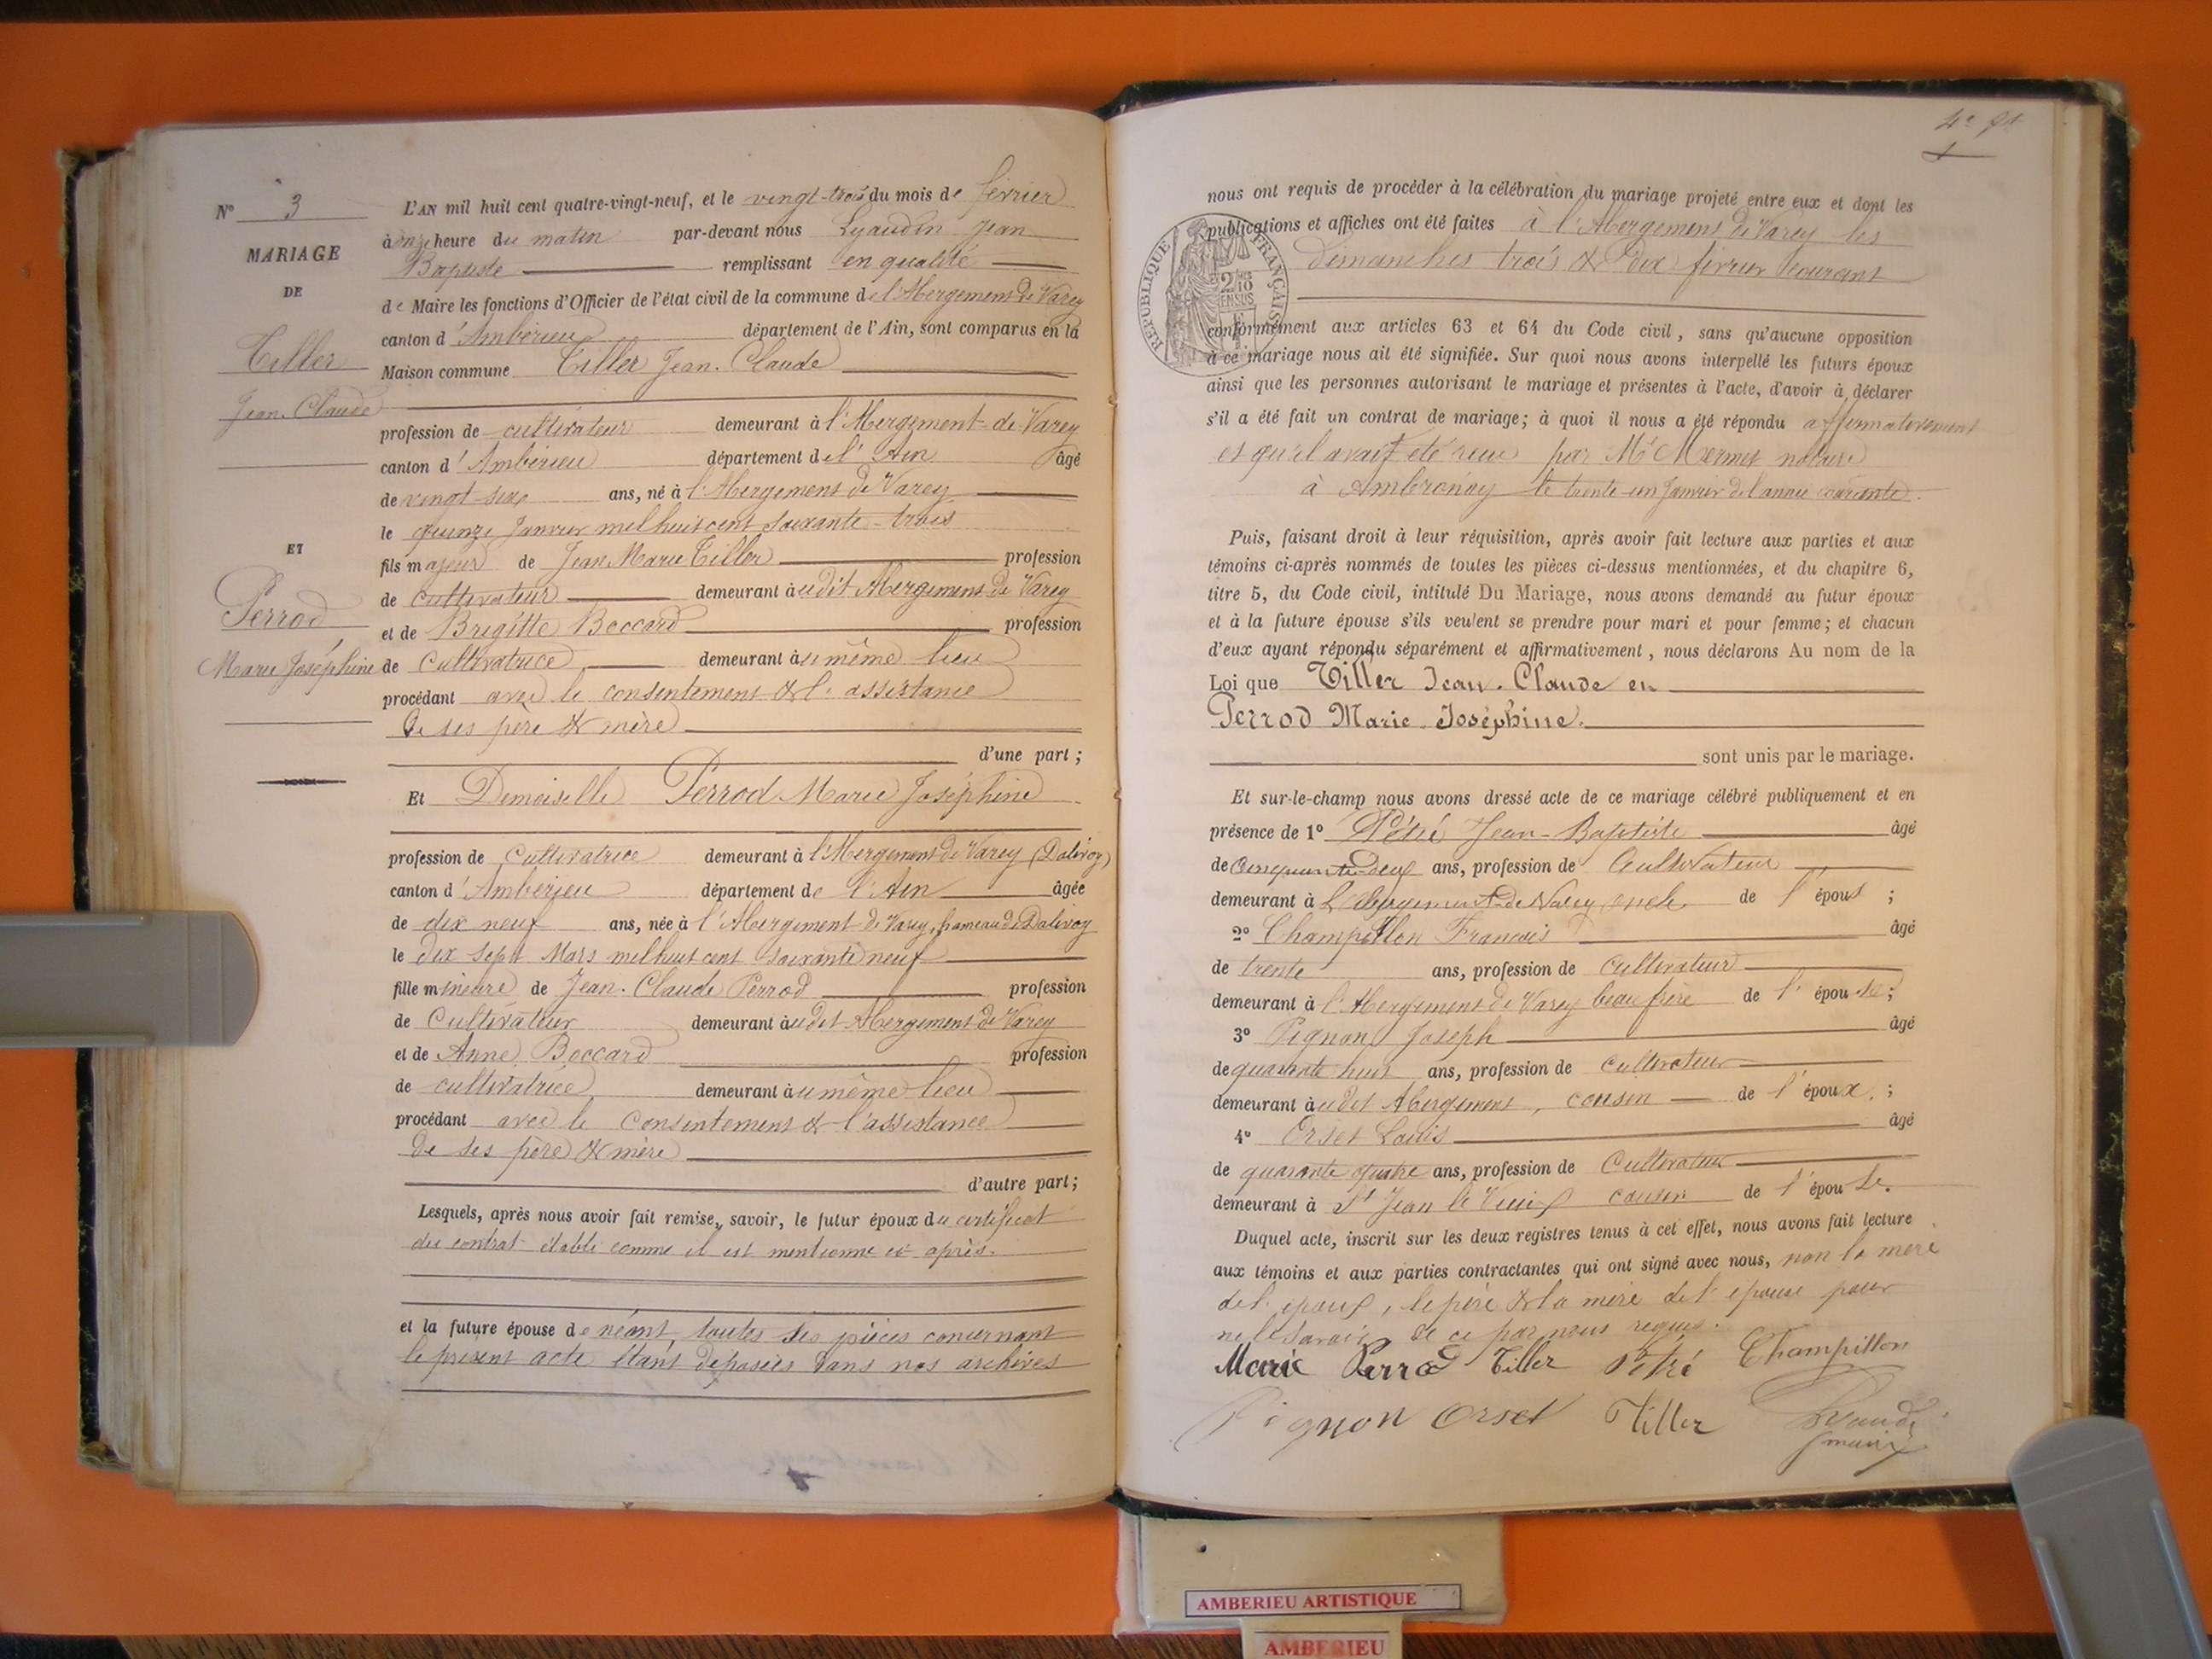 N° 3
MARIAGE
DE
Tiller
Jean-Claude
ET
Perrod
Marie Joséphine
L'AN mil huit cent quatre-vingt-neuf, et le vingt-trois du mois de février
à onze heure du matin par-devant nous Lyaudin Jean
Baptiste remplissant en qualité
de Maire les fonctions d'Officier de l'état civil de la commune de l'Abergement de Varey
canton d'Ambérieu département de l'Ain, sont comparus en la
Maison commune Tiller Jean-Claude
profession de cultivateur demeurant à l'Abergement-de-Varey
canton d'Ambérieu département de l'Ain âgé
de vingt-six ans, né à l'Abergement de Varey
le quinze Janvier mil huit cent soixante-trois
fils majeur de Jean Marie Tiller profession
de cultivateur demeurant àudit Abergement de Varey
et de Brigitte Boccard profession
de Cultivatrice demeurant àu même lieu
procédant avec le consentement & l'assistance
de ses père & mère
d'une part ;
Et Demoiselle Perrod Marie Joséphine
profession de Cultivatrice demeurant à l'Abergement de Varey (Dalivoy)
canton d'Ambérieu département de l'Ain âgée
de dix neuf ans, née à l'Abergement de Varey, hameau de Dalivoy
le dix sept Mars mil huit cent soixante neuf
fille mineure de Jean-Claude Perrod profession
de Cultivateur demeurant àudit Abergement de Varey
et de Anne Boccard profession
de cultivatrice demeurant àu même lieu
procédant avec le consentement & l'assistance
de ses père & mère
d'autre part ;
Lesquels, après nous avoir fait remise, savoir, le futur époux du certificat
du contrat établi comme il est mentionné ci après.
et la future épouse de néant, toutes les pièces concernant
le présent acte étant déposées dans nos archives
nous ont requis de procéder à la célébration du mariage projeté entre eux et dont les
publications et affiches ont été faites à l'Abergement de Varey les
dimanches trois & dix février courant
RÉPUBLIQUE FRANÇAISE
conformément aux articles 63 et 64 du Code civil, sans qu'aucune opposition
à ce mariage nous ait été signifiée. Sur quoi nous avons interpellé les futurs époux
ainsi que les personnes autorisant le mariage et présentes à l'acte, d'avoir à déclarer
s'il a été fait un contrat de mariage ; à quoi il nous a été répondu affirmativement
et qu'il avait été reçu par Me Mermet notaire
à Ambronay le trente-un Janvier de l'année courante.
Puis, faisant droit à leur réquisition, après avoir fait lecture aux parties et aux
témoins ci-après nommés de toutes les pièces ci-dessus mentionnées, et du chapitre 6,
titre 5, du Code civil, intitulé Du Mariage, nous avons demandé au futur époux
et à la future épouse s'ils veulent se prendre pour mari et pour femme ; et chacun
d'eux ayant répondu séparément et affirmativement, nous déclarons Au nom de la
Loi que Tiller Jean-Claude et
Perrod Marie-Joséphine.
sont unis par le mariage.
Et sur-le-champ nous avons dressé acte de ce mariage célébré publiquement et en
présence de 1° Pétré Jean-Baptiste âgé
de Cinquante-Deux ans, profession de Cultivateur
demeurant à L'Abergement de Varey oncle de l'époux ;
2° Champillon François âgé
de trente ans, profession de cultivateur
demeurant à l'Abergement de Varey beau frère de l'épouse ;
3° Pignon Joseph âgé
de quarante huit ans, profession de cultivateur
demeurant àudit Abergement, cousin de l'époux. ;
4° Orset Louis âgé
de quarante quatre ans, profession de Cultivateur
demeurant à St Jean le Vieux cousin de l'épouse.
Duquel acte, inscrit sur les deux registres tenus à cet effet, nous avons fait lecture
aux témoins et aux parties contractantes qui ont signé avec nous, non la mère
de l'époux, le père & la mère de l'épouse pour
ne le savoir de ce par nous requis.
Marie Perrod Tiller Pétré Champillon
Pignon Orset Tiller Lyaudin
maire
AMBERIEU ARTISTIQUE
AMBERIEU